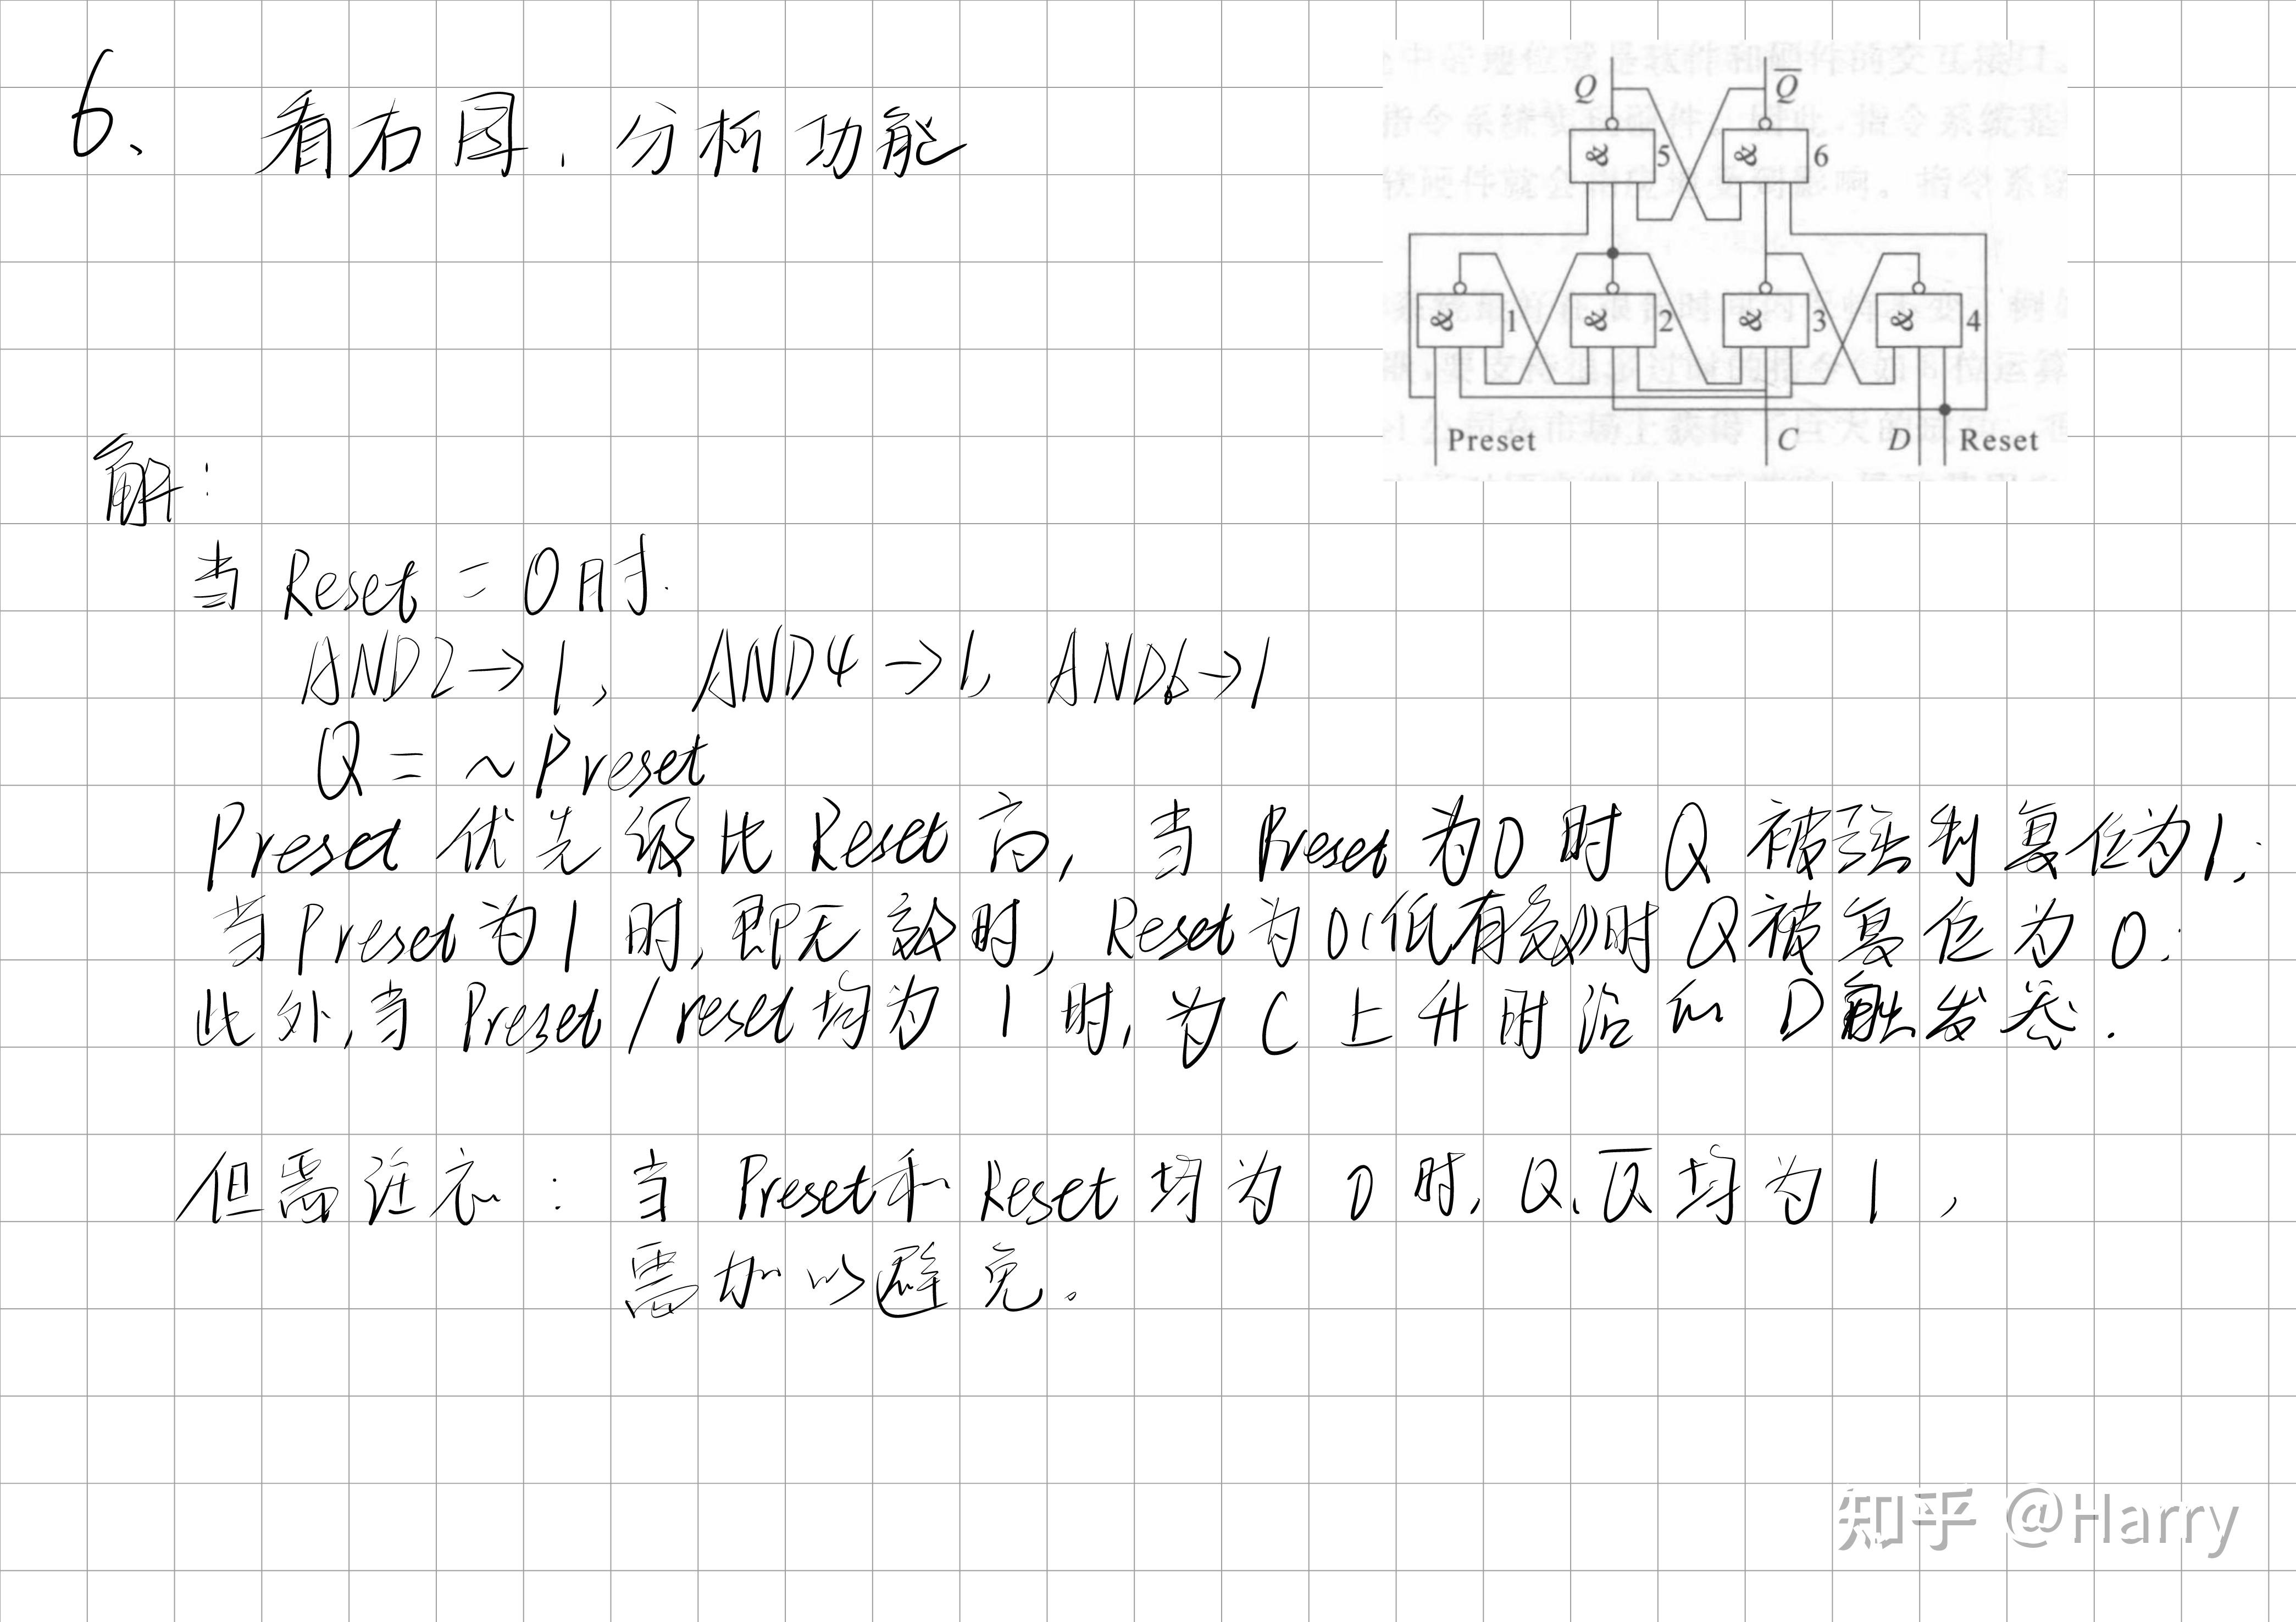 6、 看右图，分析功能
Q Q̅
& 5 & 6
& 1 & 2 & 3 & 4
Preset C D Reset
解：
当 Reset = 0时.
AND2→1, AND4→1, AND6→1
Q = ~Preset
Preset 优先级比 Reset 高, 当 Preset 为0 时 Q 被强制复位为1;
当Preset为1 时, 即无效时, Reset为0(低有效)时 Q被复位为 0;
此外, 当 Preset/reset均为 1 时, 为 C 上升时沿的 D触发器.
但需注意： 当 Preset和 Reset 均为 0 时, Q、Q̅ 均为 1 ,
需加以避免。
知乎 @Harry